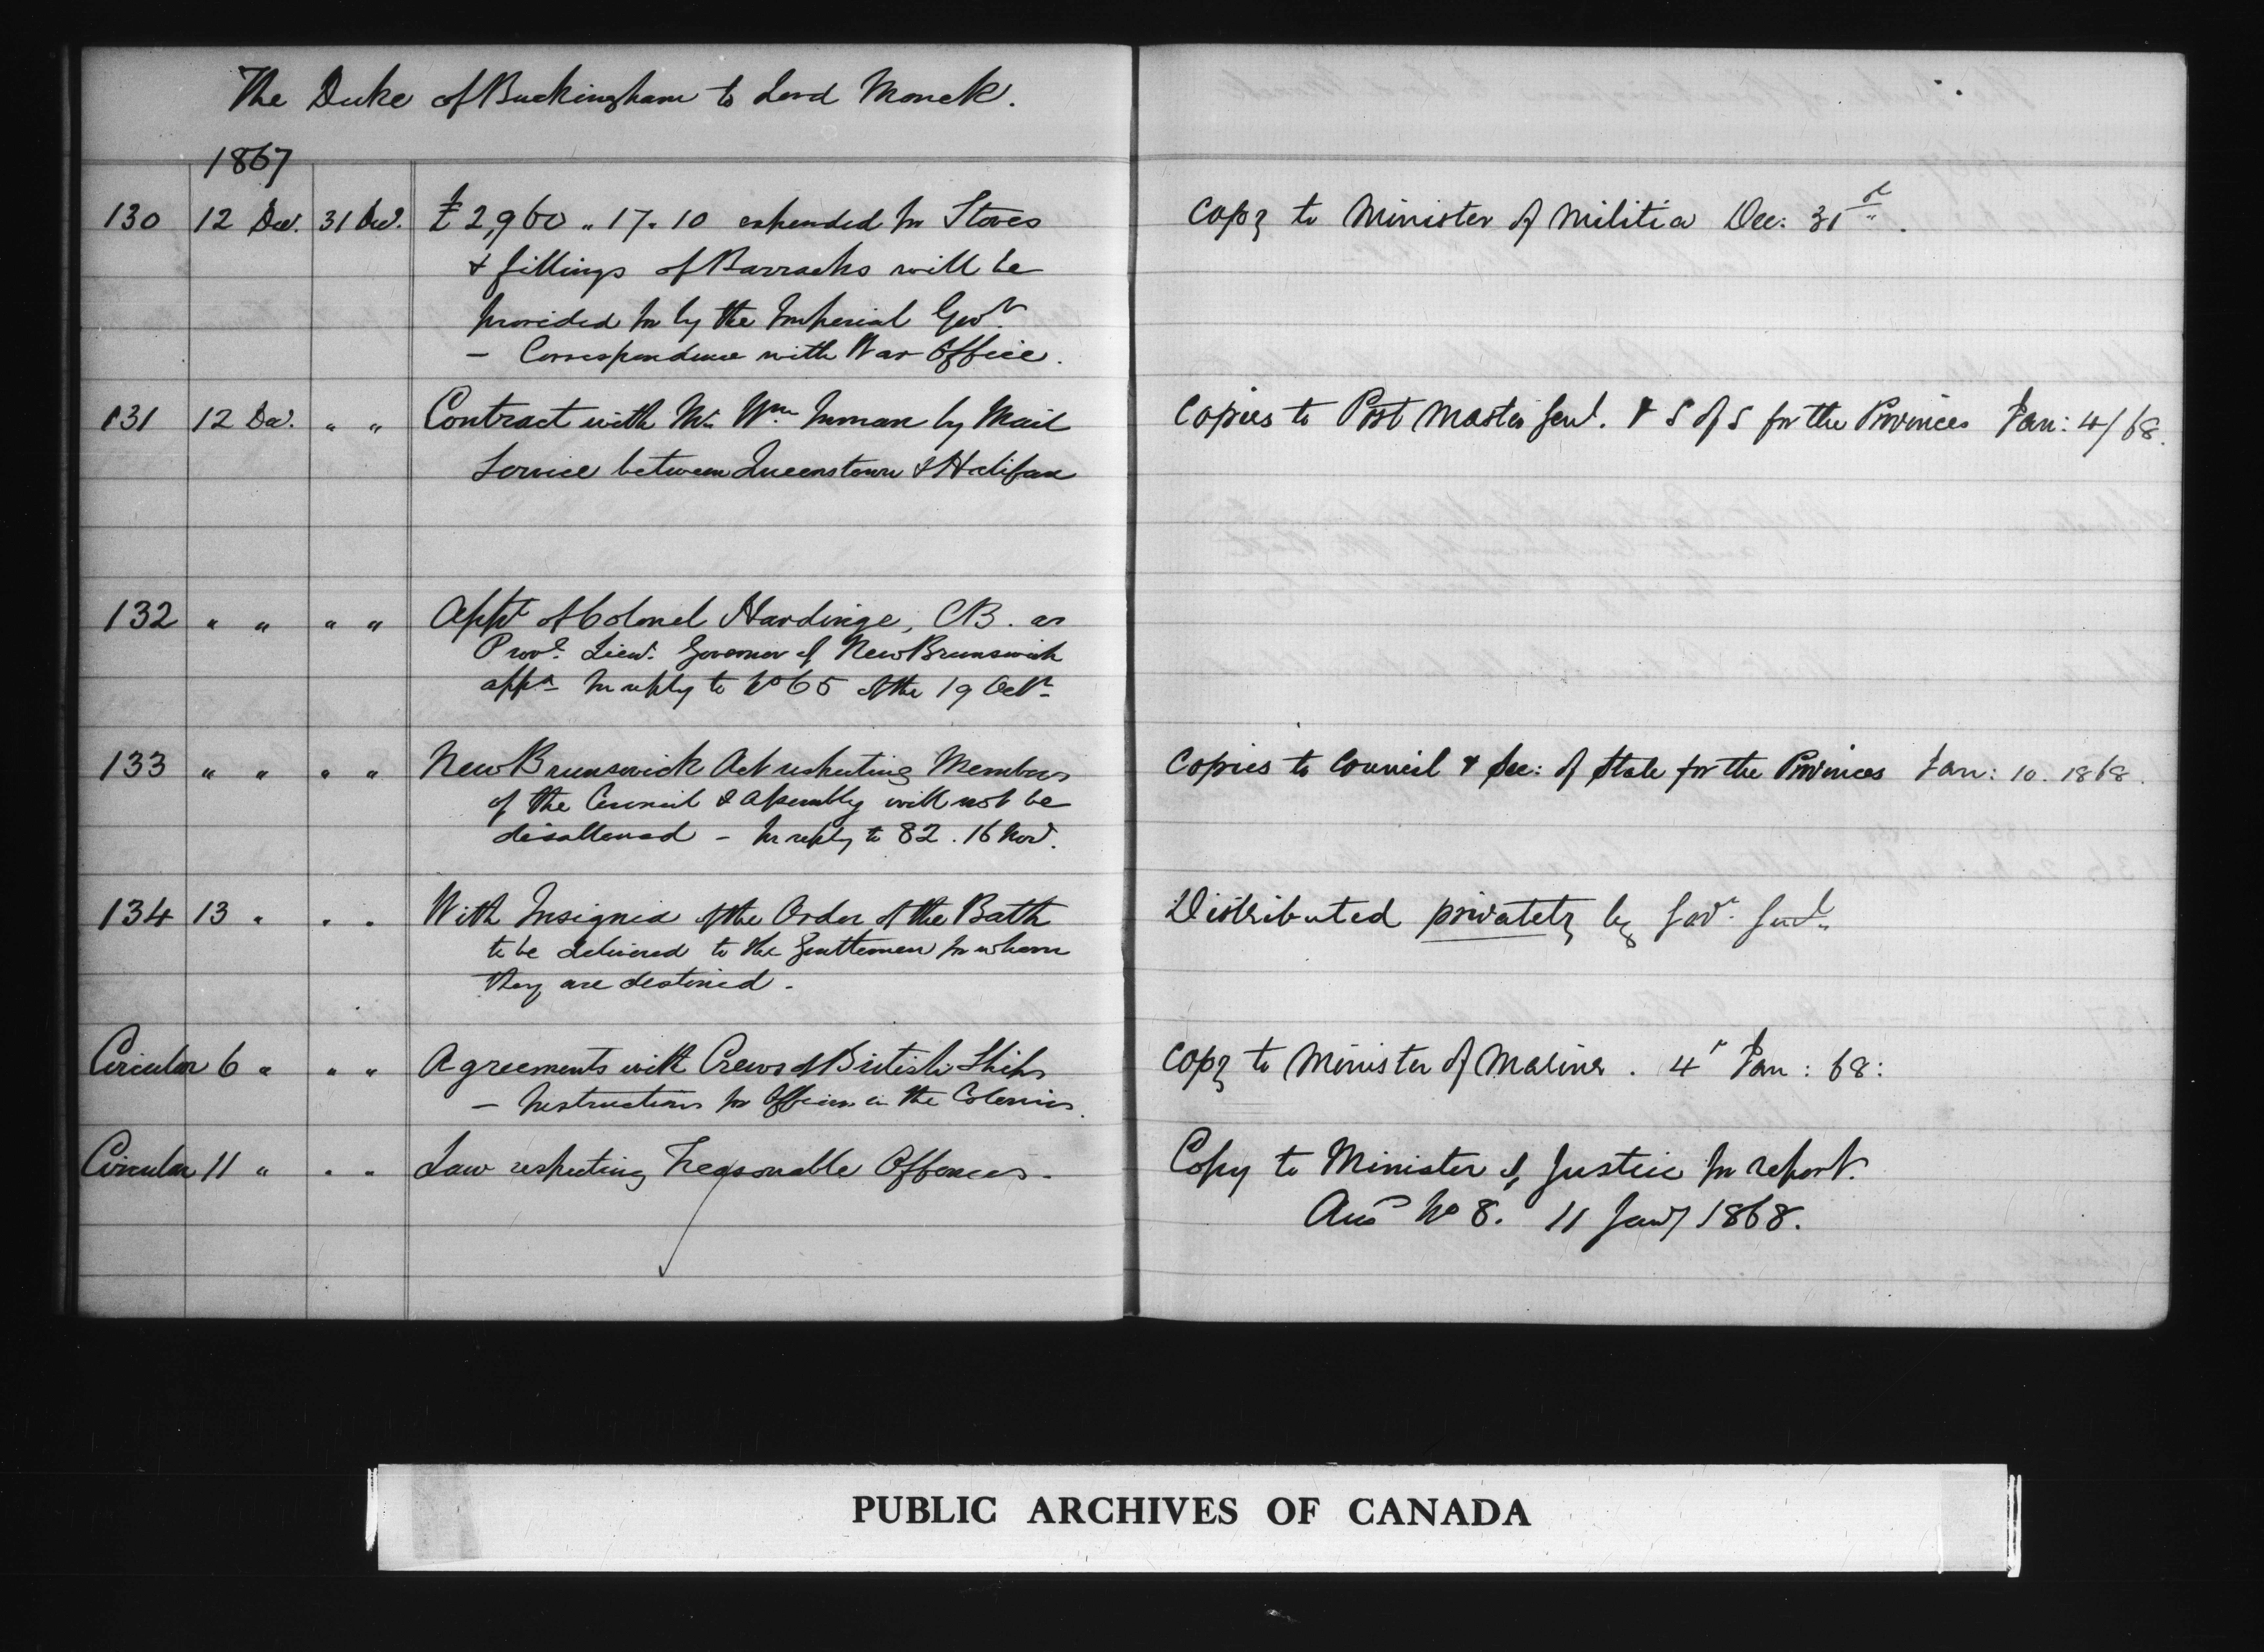 The Duke of Buckingham to Lord Monck.
1867
130 12 Decr. 31 Decr. £2,960 " 17 " 10 expended for Stoves Copy to Minister of Militia Dec: 31st.
& fittings of Barracks will be
provided for by the Imperial Govt.
— Correspondence with War Office.
131 12 Decr. " " Contract with Mr. Wm. Inman by Mail Copies to Post Master Genl. & S of S for the Provinces Jan: 4/68.
Service between Queenstown & Halifax
132 " " " " Appt. of Colonel Hardinge, CB. as
Provl. Lieut. Governor of New Brunswick
appd. In reply to No 65 of the 19 Octr.
133 " " " " New Brunswick Act respecting Members Copies to Council & Sec: of State for the Provinces Jan: 10. 1868.
of the Council & Assembly will not be
disallowed – In reply to 82. 16 Nov.
134 13 " " " With Insignia of the Order of the Bath Distributed privately by Govr. Genl.
to be delivered to the Gentlemen for whom
they are destined.
Circular 6 " " " Agreements with Crews of British Ships Copy to Minister of Marine. 4r Jan: 68:
— Instructions for Officers in the Colonies.
Circular 11 " " " Law respecting Treasonable Offences. Copy to Minister of Justice for report.
Ansd No 8. 11 Jany 1868.
PUBLIC ARCHIVES OF CANADA